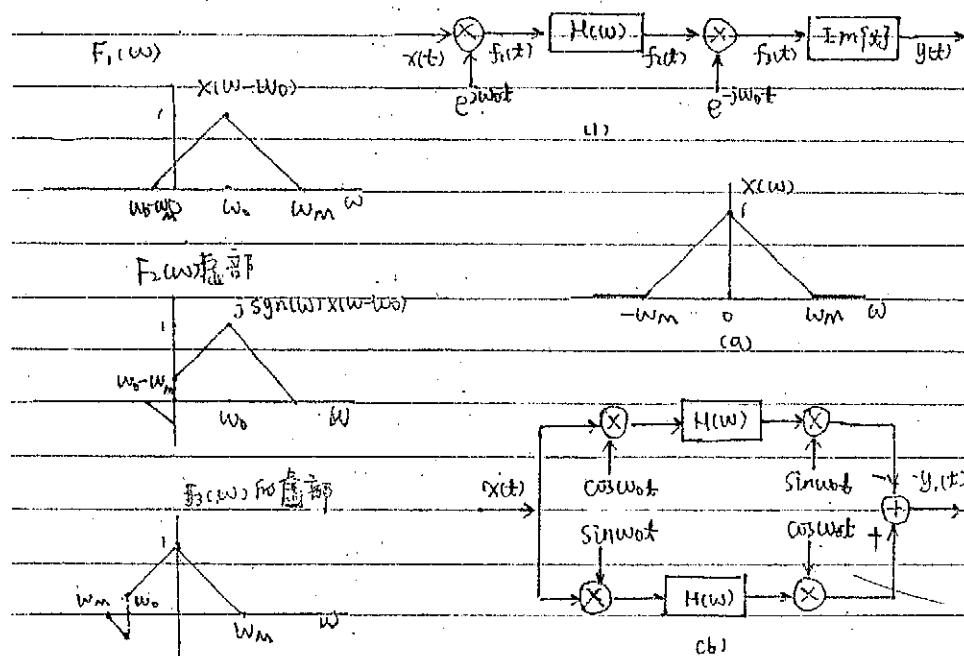 F₁(ω)
X(ω-ω₀)
1
ω₀-ωₘ ω₀ ωₘ ω
F₂(ω)虚部
j sgn(ω)X(ω-ω₀)
1
ω₀-ωₘ
ω₀ ω
F₃(ω)的虚部
1
ωₘ ω₀ ωₘ ω
x(t) f₁(t) H(ω) f₂(t) f₃(t) Im{x} y(t)
e^jω₀t e^-jω₀t
(1)
X(ω)
1
-ωₘ 0 ωₘ ω
(a)
H(ω)
x(t) cosω₀t sinω₀t - y₁(t)
+
sinω₀t cosω₀t +
H(ω)
(b)